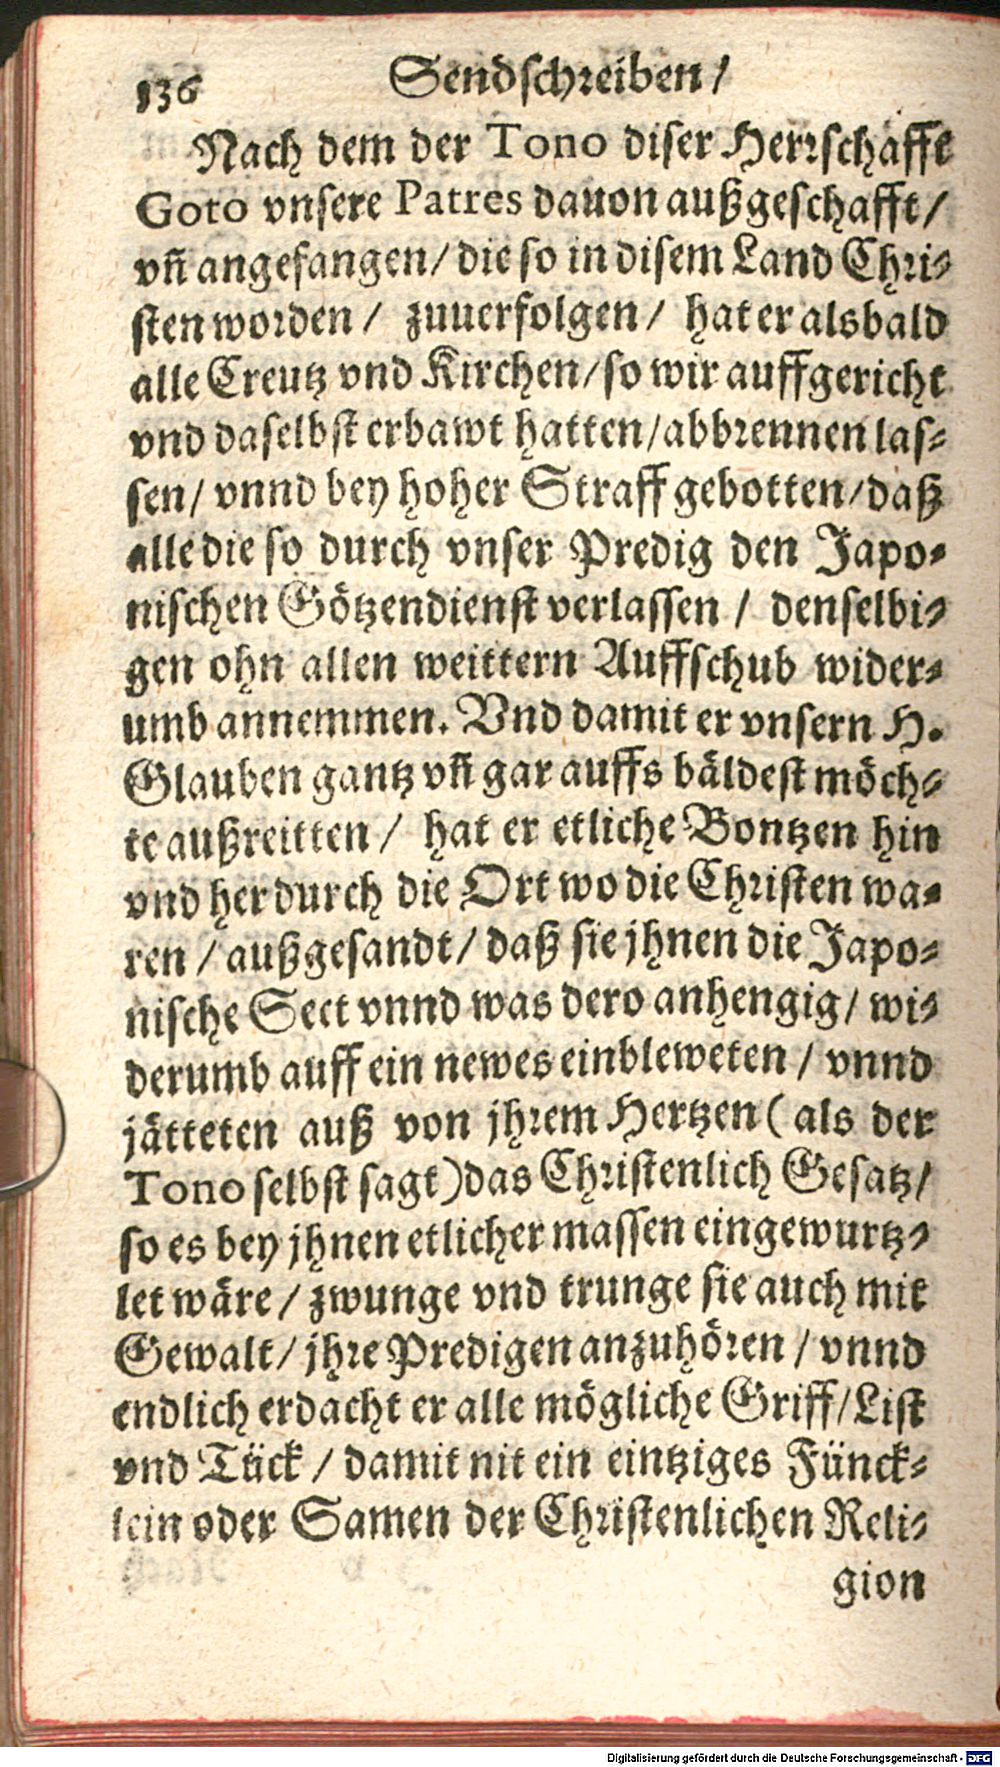 136 Sendschreiben /
Nach dem der Tono diser Herrschafft
Goto vnsere Patres dauon außgeschafft /
vñ angefangen / die so in disem Land Chri-
sten worden / zuuerfolgen / hat er alsbald
alle Creutz vnd Kirchen / so wir auffgericht
vnd daselbst erbawt hatten / abbrennen las-
sen / vnnd bey hoher Straff gebotten / daß
alle die so durch vnser Predig den Japo-
nischen Götzendienst verlassen / denselbi-
gen ohn allen weittern Auffschub wider-
umb annemmen. Vnd damit er vnsern H.
Glauben gantz vñ gar auffs bäldest möch-
te außreitten / hat er etliche Bontzen hin
vnd her durch die Ort wo die Christen wa-
ren / außgesandt / daß sie jhnen die Japo-
nische Sect vnnd was dero anhengig / wi-
derumb auff ein newes einbleweten / vnnd
jätteten auß von jhrem Hertzen ( als der
Tono selbst sagt ) das Christenlich Gesatz /
so es bey jhnen etlicher massen eingewurtz-
let wäre / zwunge vnd trunge sie auch mit
Gewalt / jhre Predigen anzuhören / vnnd
endlich erdacht er alle mögliche Griff / List
vnd Tück / damit nit ein eintziges Fünck-
lein oder Samen der Christenlichen Reli-
gion
Digitalisierung gefördert durch die Deutsche Forschungsgemeinschaft - DFG